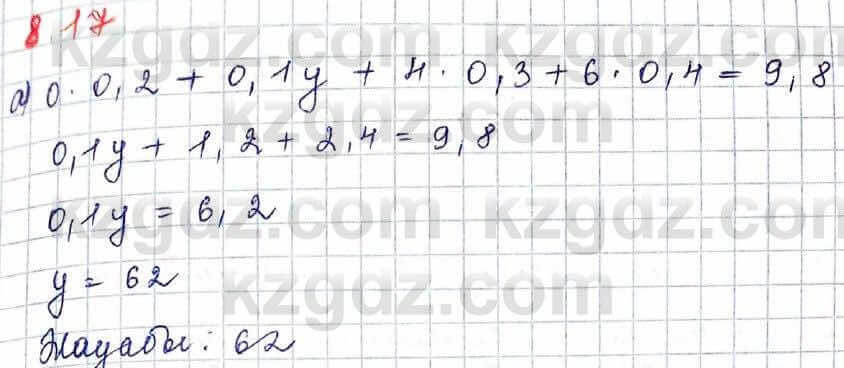 8.17
а) 0 · 0,2 + 0,1y + 4 · 0,3 + 6 · 0,4 = 9,8
0,1y + 1,2 + 2,4 = 9,8
0,1y = 6,2
y = 62
Жауабы: 62
kzgdz.com kzgdz.com
kzgdz.com
kzgdz.com kzgdz.com
kzgdz.com